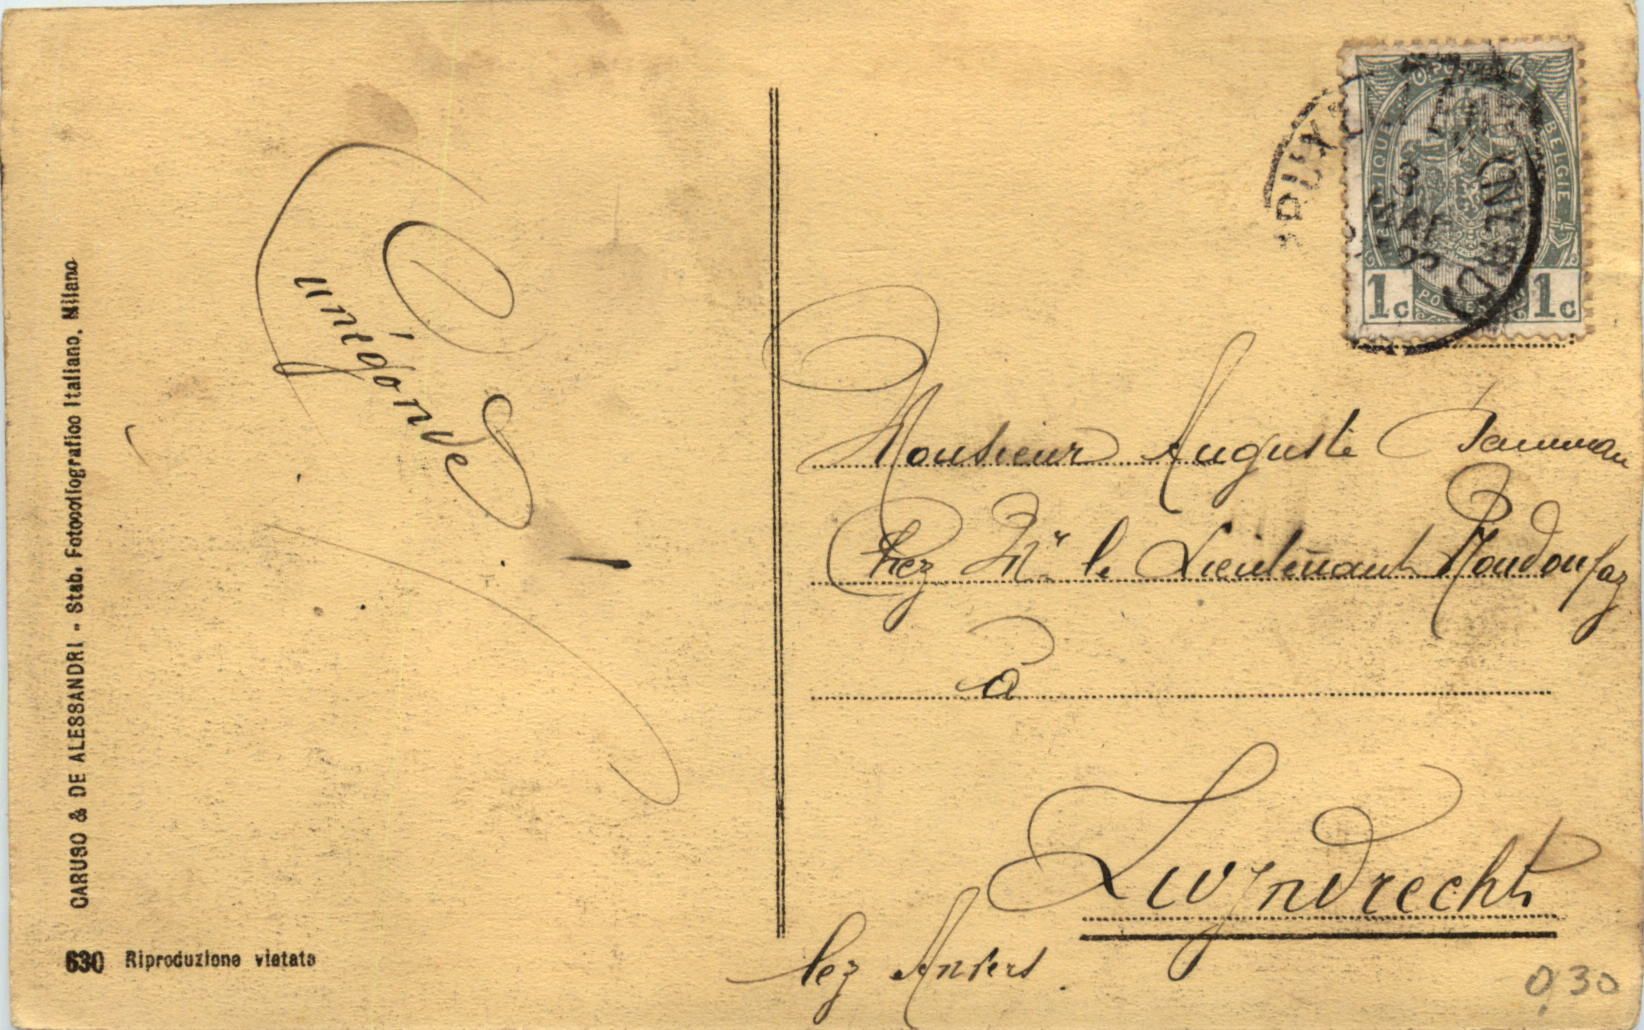 CARUSO & DE ALESSANDRI - Stab. Fotocollografico Italiano. Milano
630 Riproduzione vietata
Cunégonde!
BELGIE
1c 1c
Monsieur Auguste
Chez Mr. le Lieutenant
à
Zwyndrecht
lez Anvers.
0,30